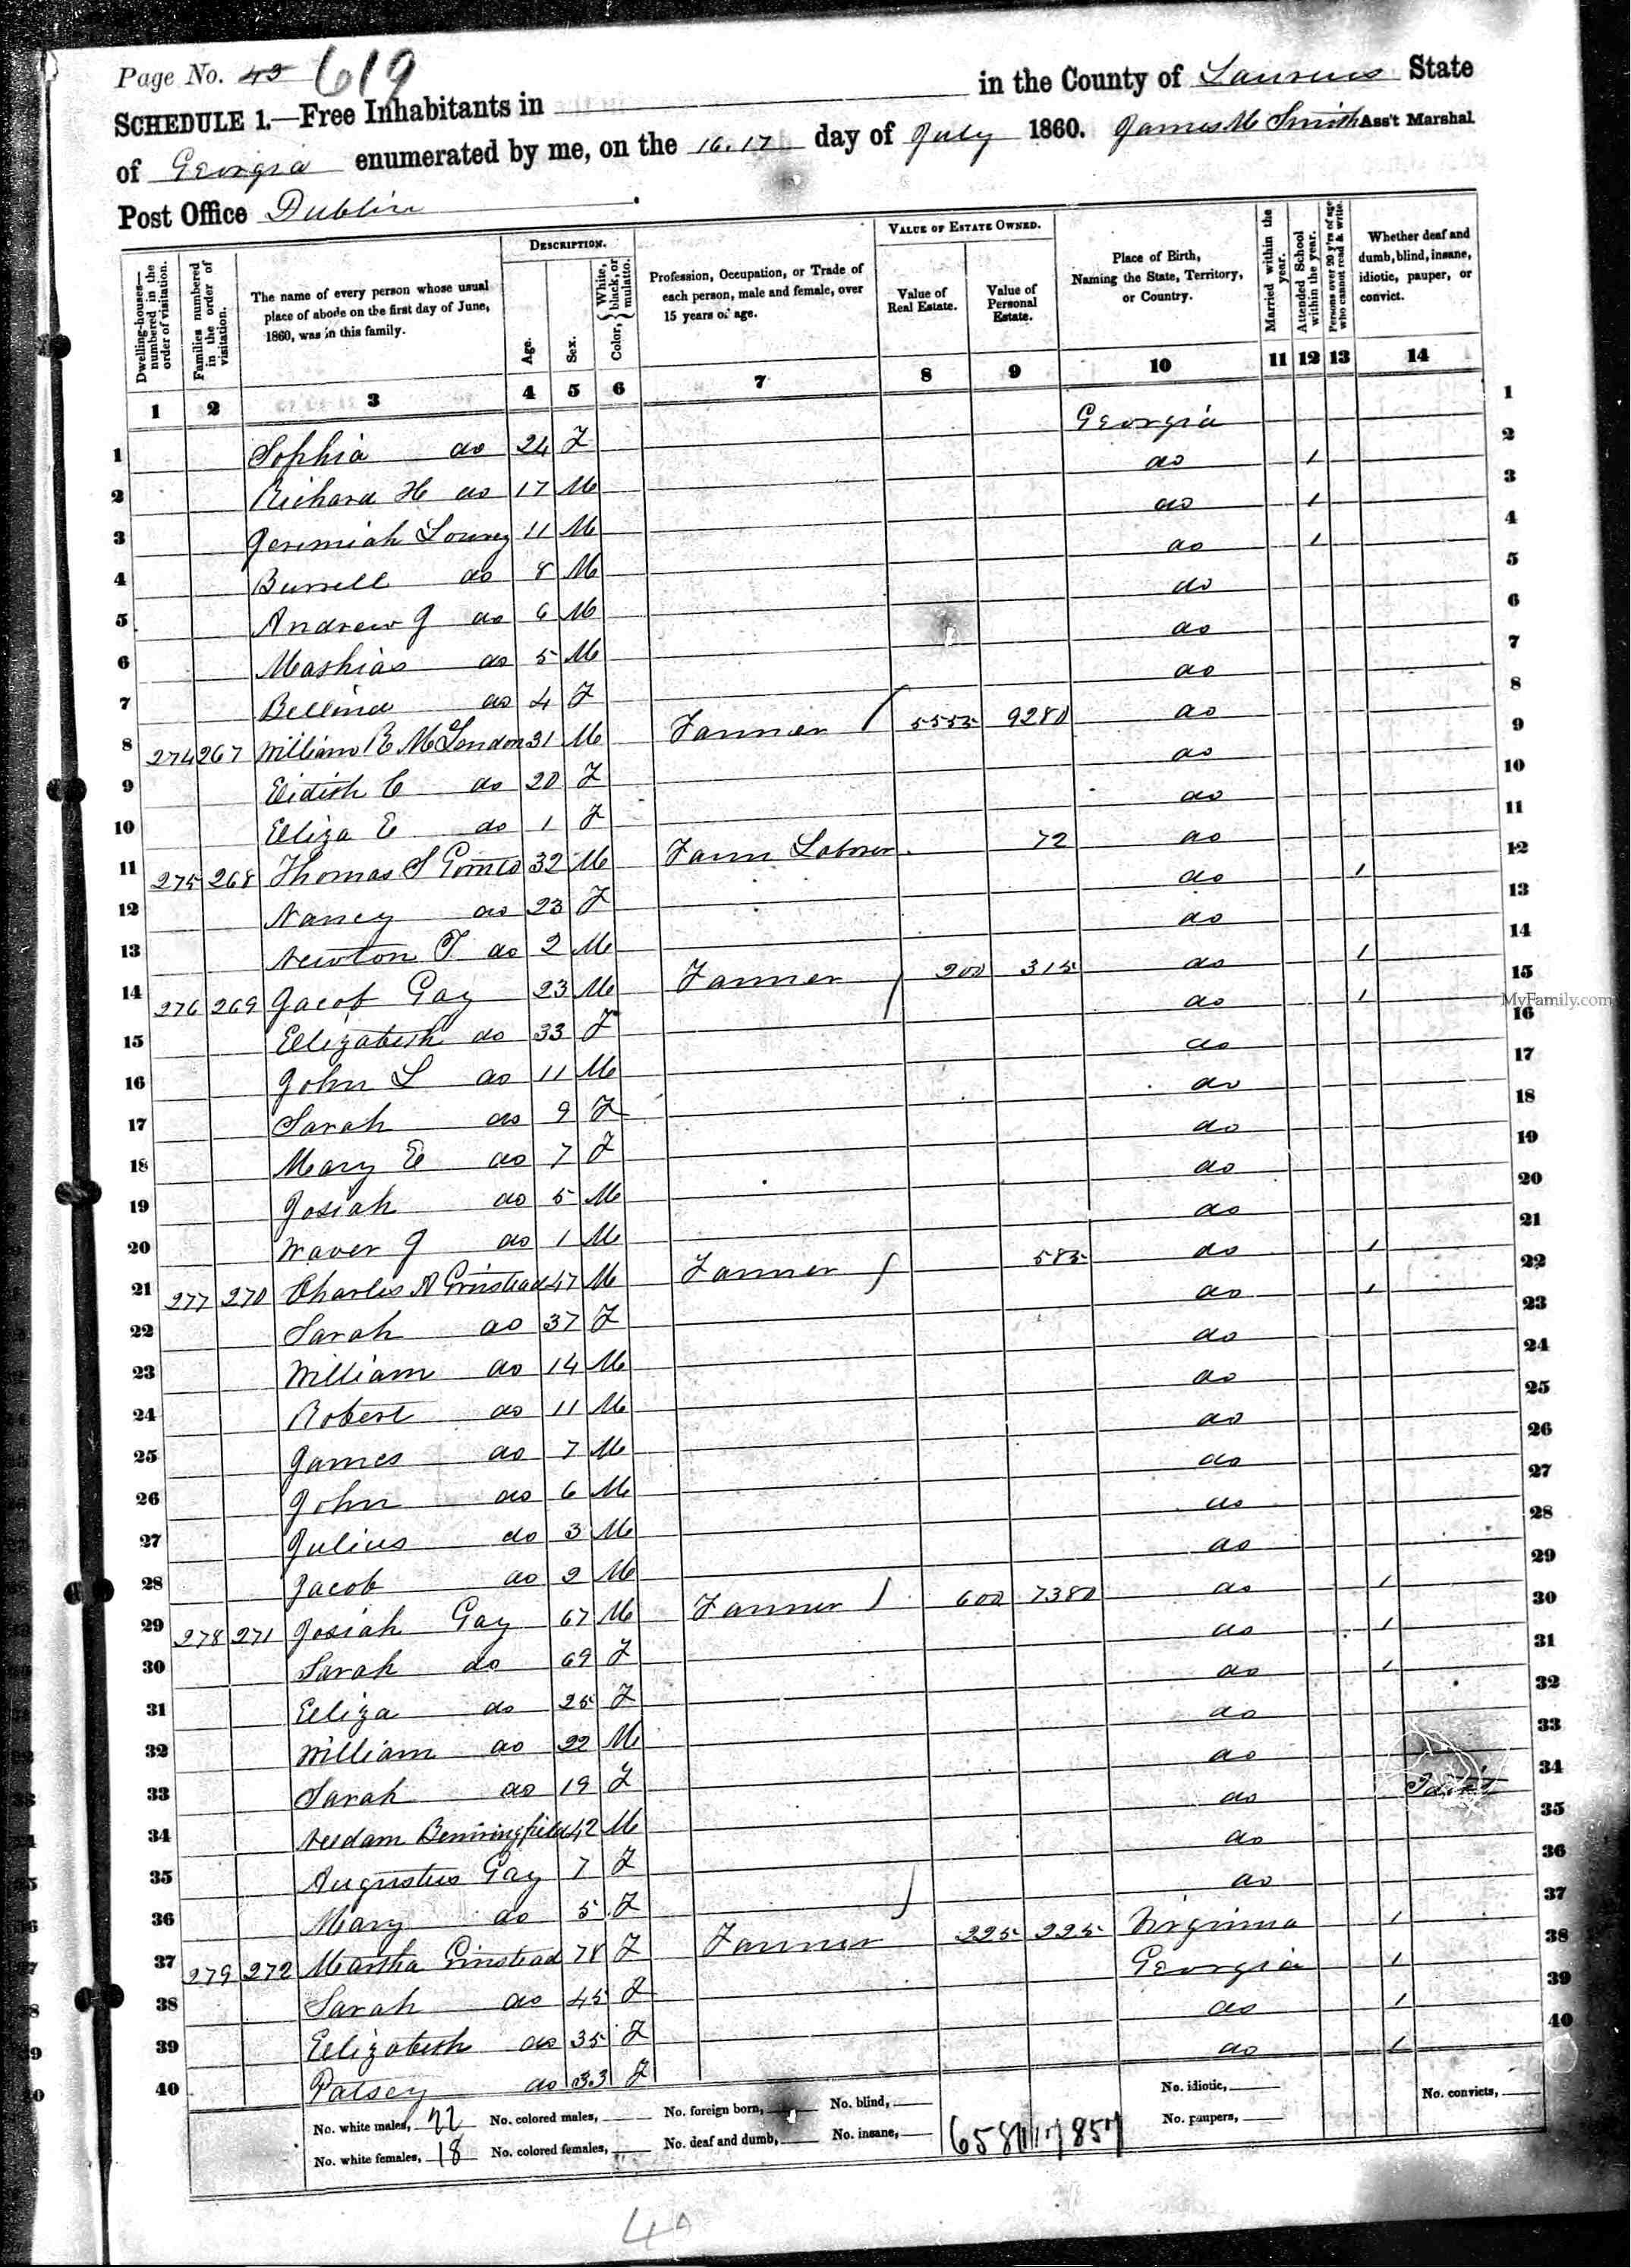 Page No. 45 619
in the County of Laurens State
SCHEDULE 1.—Free Inhabitants in
of Georgia enumerated by me, on the 16.17 day of July 1860. James M Smith Ass't Marshal
Post Office Dublin.
Dwelling-houses—numbered in the order of visitation.
Families numbered in the order of visitation.
The name of every person whose usual place of abode on the first day of June, 1860, was in this family.
DESCRIPTION.
Age.
Sex.
Color, White, black, or mulatto.
Profession, Occupation, or Trade of each person, male and female, over 15 years of age.
VALUE OF ESTATE OWNED.
Value of Real Estate.
Value of Personal Estate.
Place of Birth, Naming the State, Territory, or Country.
Married within the year.
Attended School within the year.
Persons over 20 y'rs of age who cannot read & write.
Whether deaf and dumb, blind, insane, idiotic, pauper, or convict.
1 2 3 4 5 6 7 8 9 10 11 12 13 14
1 Sophia do 24 F Georgia 1
2 Richard H do 17 M do 1 2
3 Jeremiah Lowrey 11 M do 1 3
4 Burrell do 8 M do 1 4
5 Andrew J do 6 M do 5
6 Mathias do 5 M do 6
7 Bellina do 4 F do 7
8 274 267 William B McLendon 31 M Farmer 5555 9280 do 8
9 Eidith C do 20 F do 9
10 Elliza E do 1 F do 10
11 275 268 Thomas S 32 M Farm Laborer 72 do 11
12 Nancy do 23 F do 1 12
13 Newton T do 2 M do 13
14 276 269 Jacob Gay 23 M Farmer 200 315 do 1 14
15 Elizabeth do 33 F do 1 15
16 John L do 11 M do 16
17 Sarah do 9 F do 17
18 Mary E do 7 F do 18
19 Josiah do 5 M do 19
20 Waver J do 1 M do 20
21 277 270 Charles A Grinstead 47 M Farmer 585 do 1 21
22 Sarah do 37 F do 1 22
23 William do 14 M do 23
24 Robert do 11 M do 24
25 James do 7 M do 25
26 John do 6 M do 26
27 Julius do 3 M do 27
28 Jacob do 2 M do 28
29 278 271 Josiah Gay 67 M Farmer 600 7380 do 1 29
30 Sarah do 69 F do 1 30
31 Eliza do 25 F do 1 31
32 William do 22 M do 32
33 Sarah do 19 F do 33
34 Needam Benningfield 42 M do Idiot 34
35 Augustus Gay 7 F do 35
36 Mary do 5 F do 36
37 279 272 Martha Grinstead 78 F Farmer 225 225 Virginia 1 37
38 Sarah do 45 F Georgia 1 38
39 Elizabeth do 35 F do 1 39
40 Patsey do 33 F do 1 40
No. white males, 22 No. colored males, No. foreign born, No. blind, No. idiotic, No. convicts,
No. white females, 18 No. colored females, No. deaf and dumb, No. insane, No. paupers,
4A
MyFamily.com